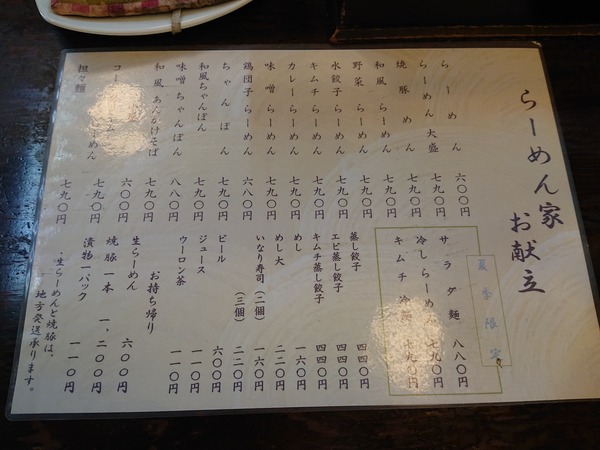 らーめん家
お献立
らーめん 六〇〇円
らーめん大盛 七九〇円
焼豚めん 七九〇円
和風らーめん 七九〇円
野菜らーめん 七九〇円
水餃子らーめん 七九〇円
キムチらーめん 七九〇円
カレーらーめん 七九〇円
味噌らーめん 七九〇円
鶏団子らーめん 六八〇円
ちゃんぽん 七九〇円
和風ちゃんぽん 七九〇円
味噌ちゃんぽん 八八〇円
和風あんかけそば 七九〇円
六〇〇円
らーめん 七九〇円
担々麺 七九〇円
夏季限定
サラダ麺 八八〇円
冷しらーめん 七九〇円
キムチ冷麺 七九〇円
蒸し餃子 四四〇円
エビ蒸し餃子 四四〇円
キムチ蒸し餃子 四四〇円
めし 一六〇円
めし大 二二〇円
いなり寿司(二個) 一六〇円
(三個) 二二〇円
ビール 六〇〇円
ジュース 一一〇円
ウーロン茶 一一〇円
お持ち帰り
生らーめん 六〇〇円
焼豚一本 一、二〇〇円
漬物一パック 一一〇円
・生らーめんと焼豚は、
地方発送承ります。